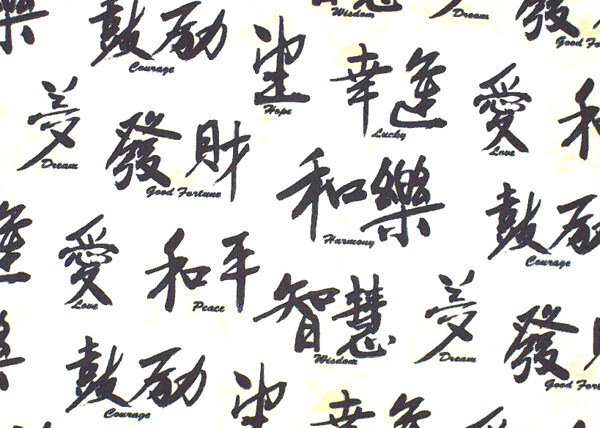 樂
鼓励
Courage
Wisdom
Dream
發
Good Fo
Hope
幸運
Lucky
愛
Love
和
夢
Dream
發財
Good Fortune
和樂
Harmony
鼓励
Courage
運
愛
Love
和平
Peace
智慧
Wisdom
夢
Dream
發
Good Fortu
樂
鼓励
Courage